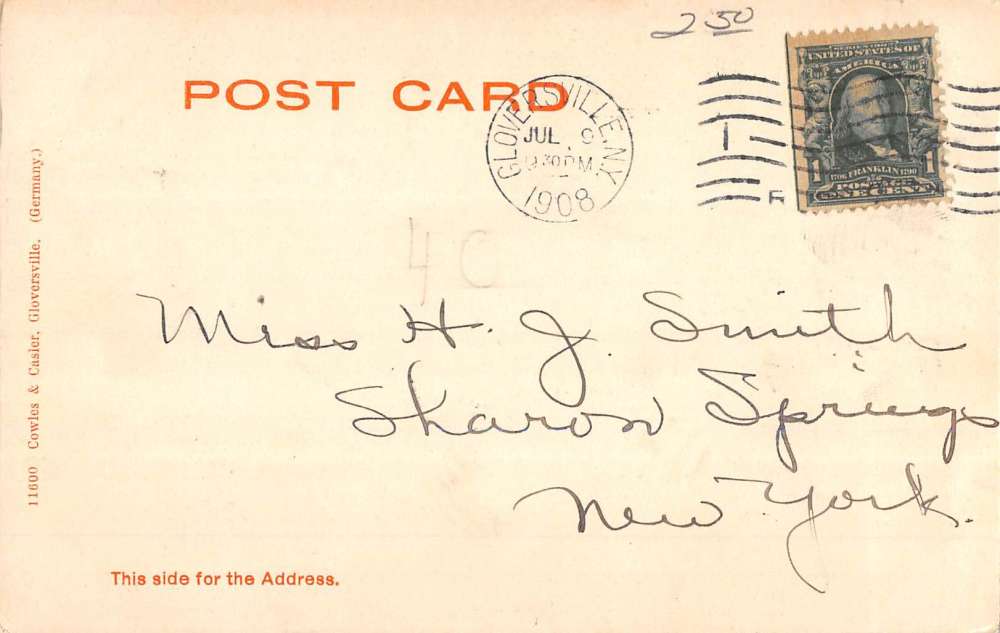 2 50
POST CARD
GLOVERSVILLE, N.Y.
JUL 9
30 PM
1908
SERIES 1902
UNITED STATES OF
AMERICA
1706 FRANKLIN 1790
POSTAGE
1 ONE CENT 1
4 C
Miss H. J. Smith
Sharon Springs
New York.
This side for the Address.
11600 Cowles & Casler, Gloversville. (Germany.)